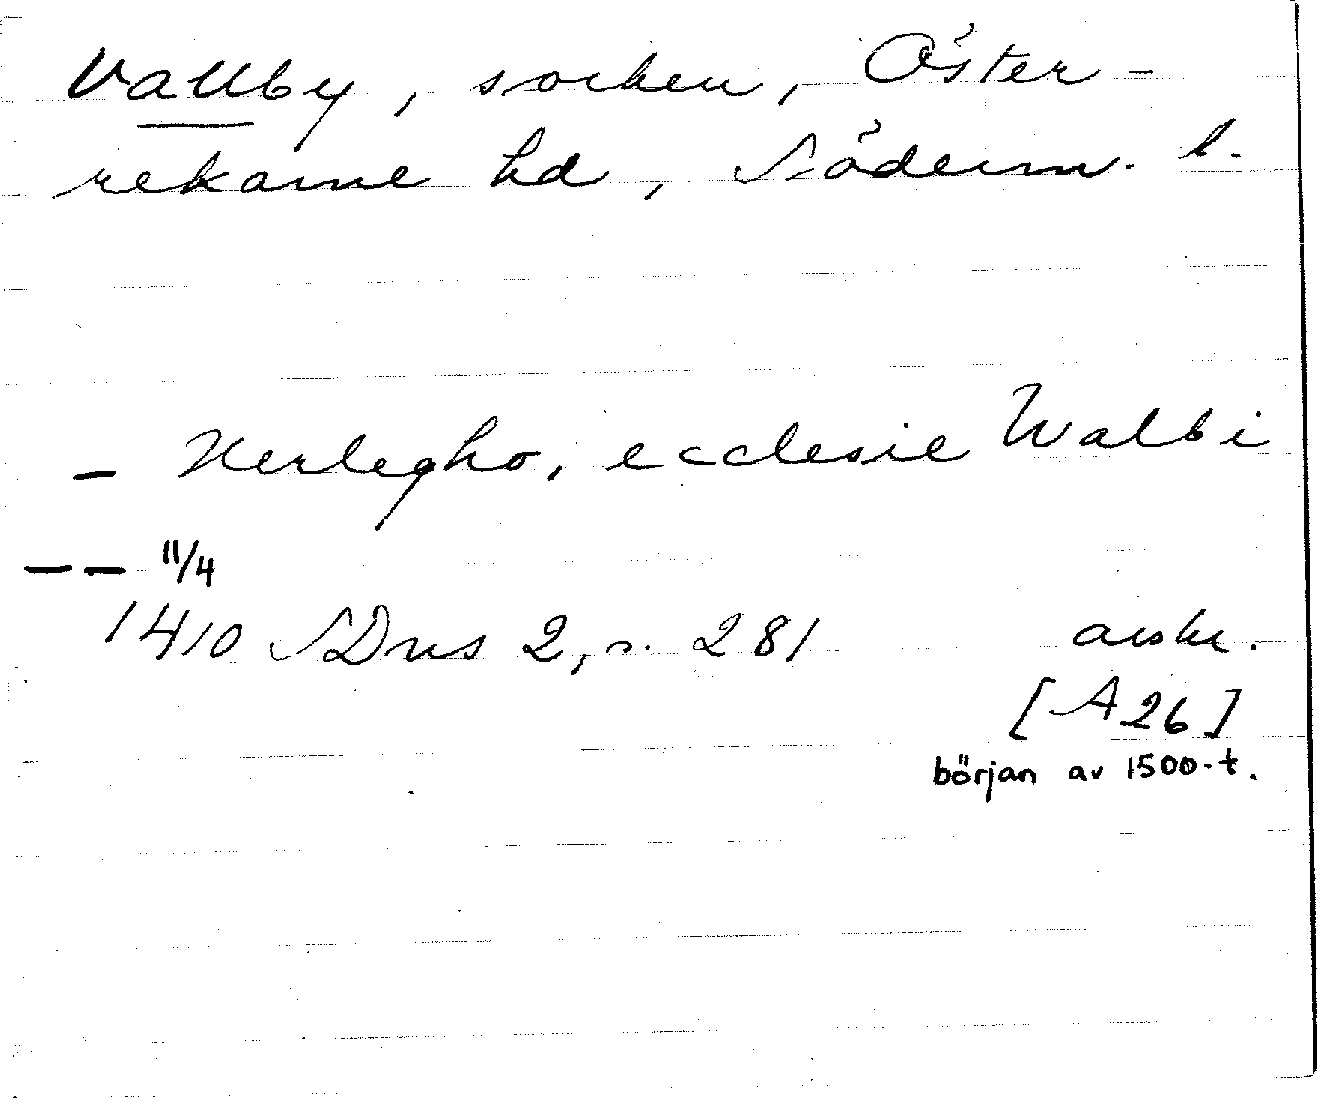 Vallby, socken, Öster-
rekarne hd, Söderm. l.
- Herlegho, ecclesie Walbi
-- 11/4
1410 SDns 2, s. 281 avskr.
[A 26]
början av 1500-t.